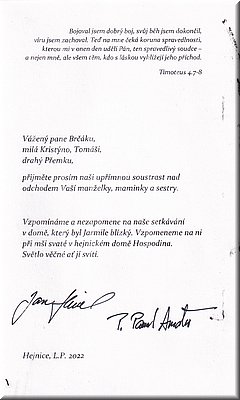 Bojoval jsem dobrý boj, svůj běh jsem dokončil,
víru jsem zachoval. Teď na mne čeká koruna spravedlnosti,
kterou mi v onen den udělí Pán, ten spravedlivý soudce –
a nejen mně, ale všem těm, kdo s láskou vyhlížejí jeho příchod.
Timoteus 4.7-8
Vážený pane Brčáku,
milá Kristýno, Tomáši,
drahý Přemku,
přijměte prosím naši upřímnou soustrast nad
odchodem Vaší manželky, maminky a sestry.
Vzpomínáme a nezapomene na naše setkávání
v domě, který byl Jarmile blízký. Vzpomeneme na ni
při mši svaté v hejnickém domě Hospodina.
Světlo věčné ať jí svítí.
P. Pavel
Hejnice, L.P. 2022